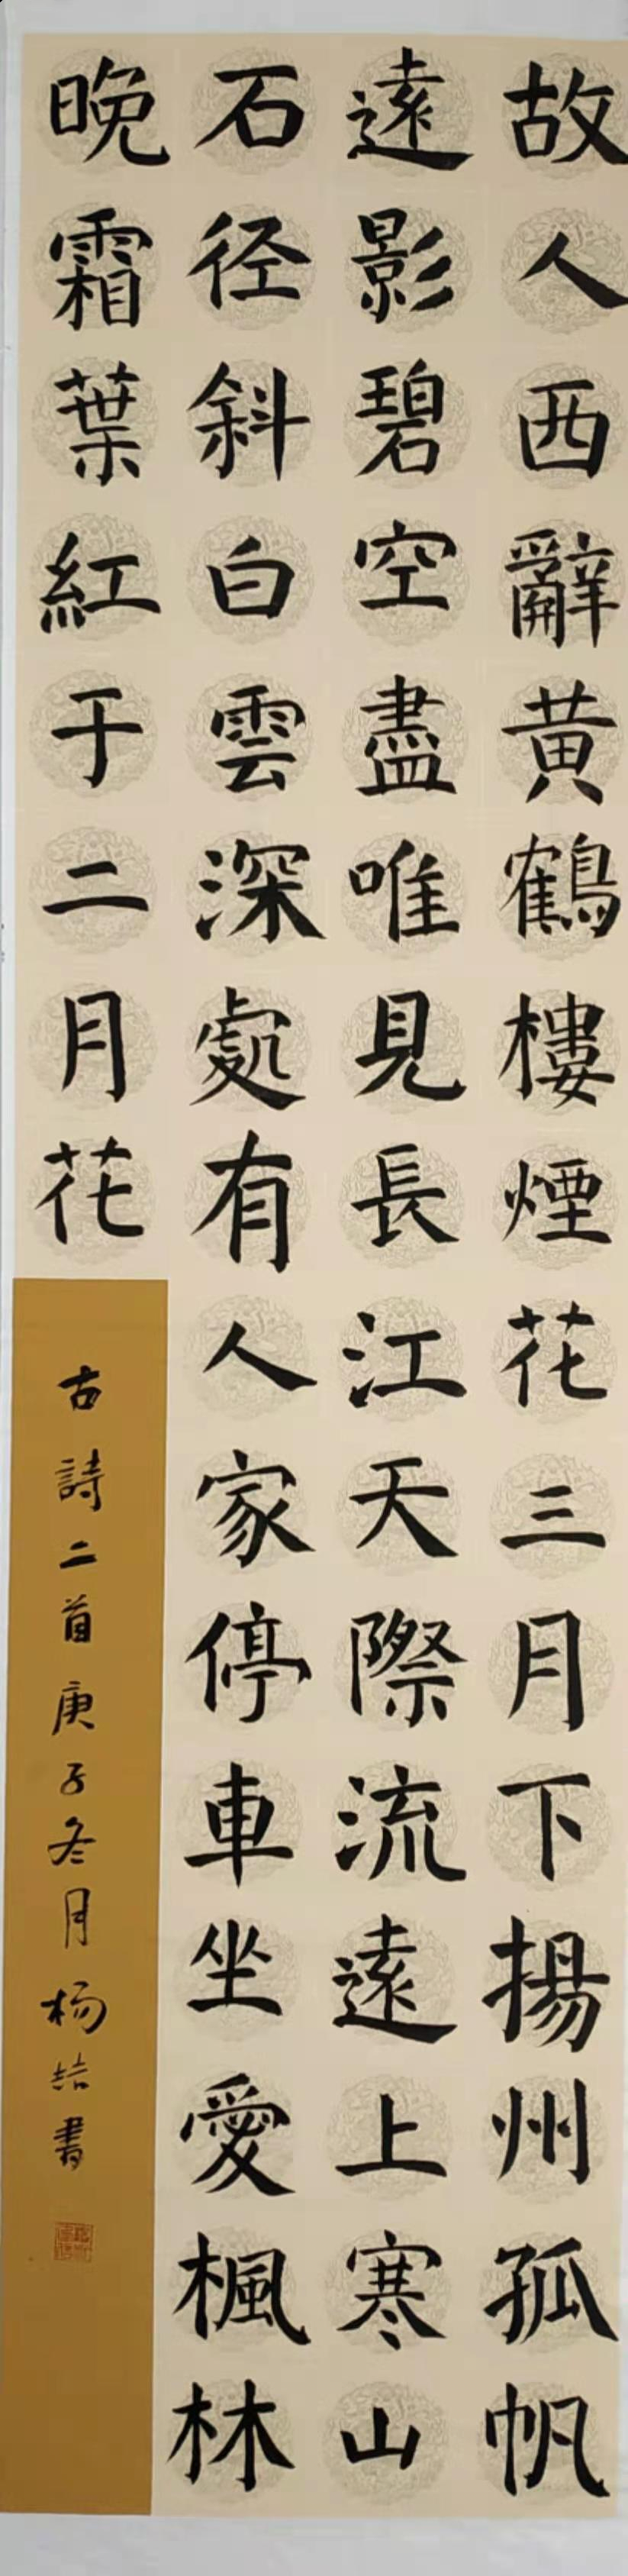 故人西辭黄鶴樓煙花三月下揚州孤帆
遠影碧空盡唯見長江天際流遠上寒山
石径斜白雲深處有人家停車坐愛楓林
晚霜葉紅于二月花
古詩二首庚子冬月杨喆書